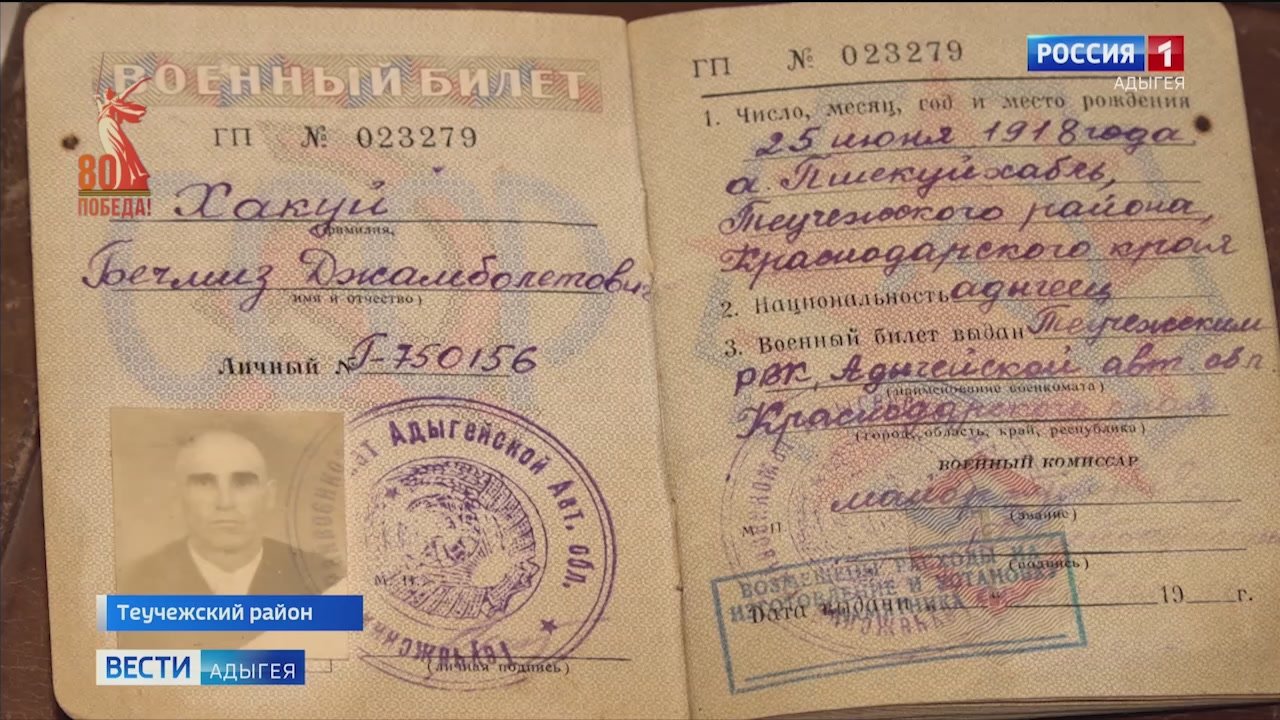 ВОЕННЫЙ БИЛЕТ
ГП № 023279
80
ПОБЕДА!
Хакуй
(фамилия,
Бечмиз Джамболетович
имя и отчество)
Личный № Г-750156
Адыгейской Авт. обл.
М. П.
(личная подпись)
Теучежский район
ВЕСТИ АДЫГЕЯ
РОССИЯ 1
АДЫГЕЯ
ГП № 023279
1. Число, месяц, год и место рождения
25 июня 1918 года
а. Пшекуйхабль,
Теучежского района,
Краснодарского края
2. Национальность адыгеец
3. Военный билет выдан Теучежским
РВК, Адыгейской авт. обл
(наименование военкомата)
Краснодарского края
(город, область, край, республика)
ВОЕННЫЙ КОМИССАР
майор
(звание)
М. П.
(подпись)
ВОЗМЕЩЕНЫ РАСХОДЫ НА
ИЗГОТОВЛЕНИЕ И УСТАНОВКУ
Дата выдачи 19 г.